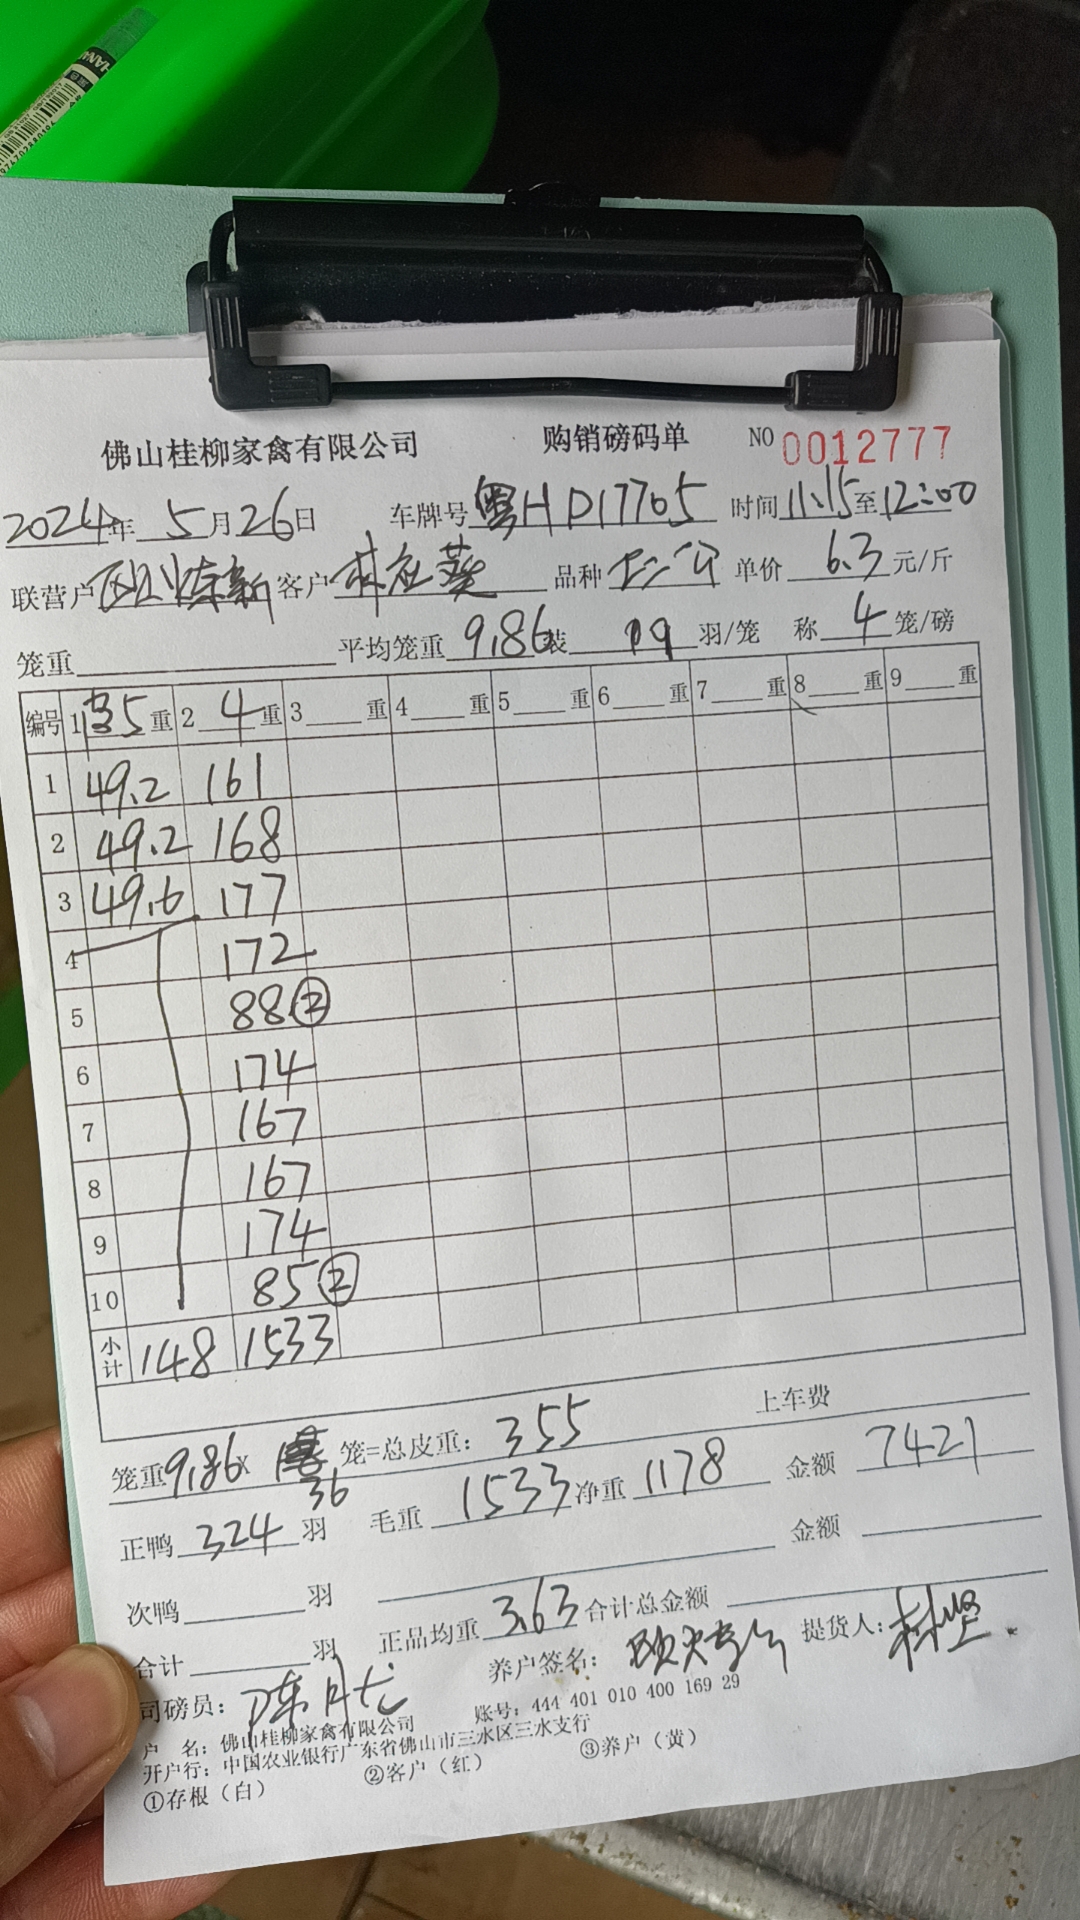 佛山桂柳家禽有限公司 购销磅码单 NO 0012777
2024年 5月26日 车牌号 粤HD17705 时间 11:15至12:00
联营户 客户 品种 单价 6.3 元/斤
笼重 平均笼重 9.86 装 9 羽/笼 称 4 笼/磅
编号 1 5 重 2 4 重 3 重 4 重 5 重 6 重 7 重 8 重 9 重
1 49.2 161
2 49.2 168
3 49.6 177
4 172
5 88 ②
6 174
7 167
8 167
9 174
10 85 ②
小计 148 1533
上车费
笼重9.86x 36 笼=总皮重: 355
正鸭 324 羽 毛重 1533 净重 1178 金额 7421
次鸭 羽 金额
合计 羽 正品均重 3.63 合计总金额
司磅员: 陈 养户签名: 提货人: 林坚
户 名: 佛山桂柳家禽有限公司 账号: 444 401 010 400 169 29
开户行: 中国农业银行广东省佛山市三水区三水支行
①存根(白) ②客户(红) ③养户(黄)